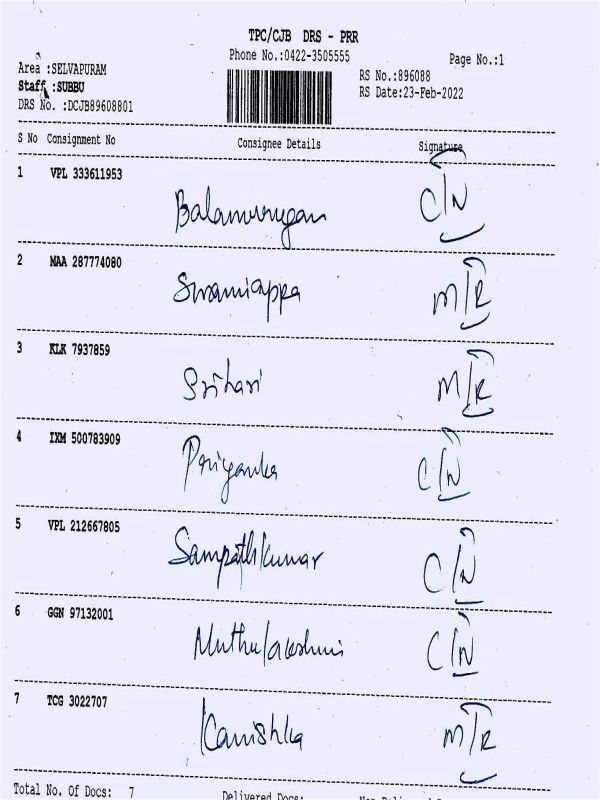 TPC/CJB DRS - PRR
Phone No.:0422-3505555
Page No.:1
Area :SELVAPURAM
RS No.:896088
Staff :SUBBU
RS Date:23-Feb-2022
DRS No. :DCJB89608801
S No Consignment No Consignee Details Signature
1 VPL 333611953
Balamurugan C/N
2 MAA 287774080
Swamiappa M/R
3 KLK 7937859
Srihari M/R
4 IXM 500783909
Priyanka C/N
5 VPL 212667805
Sampathkumar C/N
6 GGN 97132001
Muthulakshmi C/N
7 TCG 3022707
Kanishka M/R
Total No. Of Docs: 7 Delivered Docs: